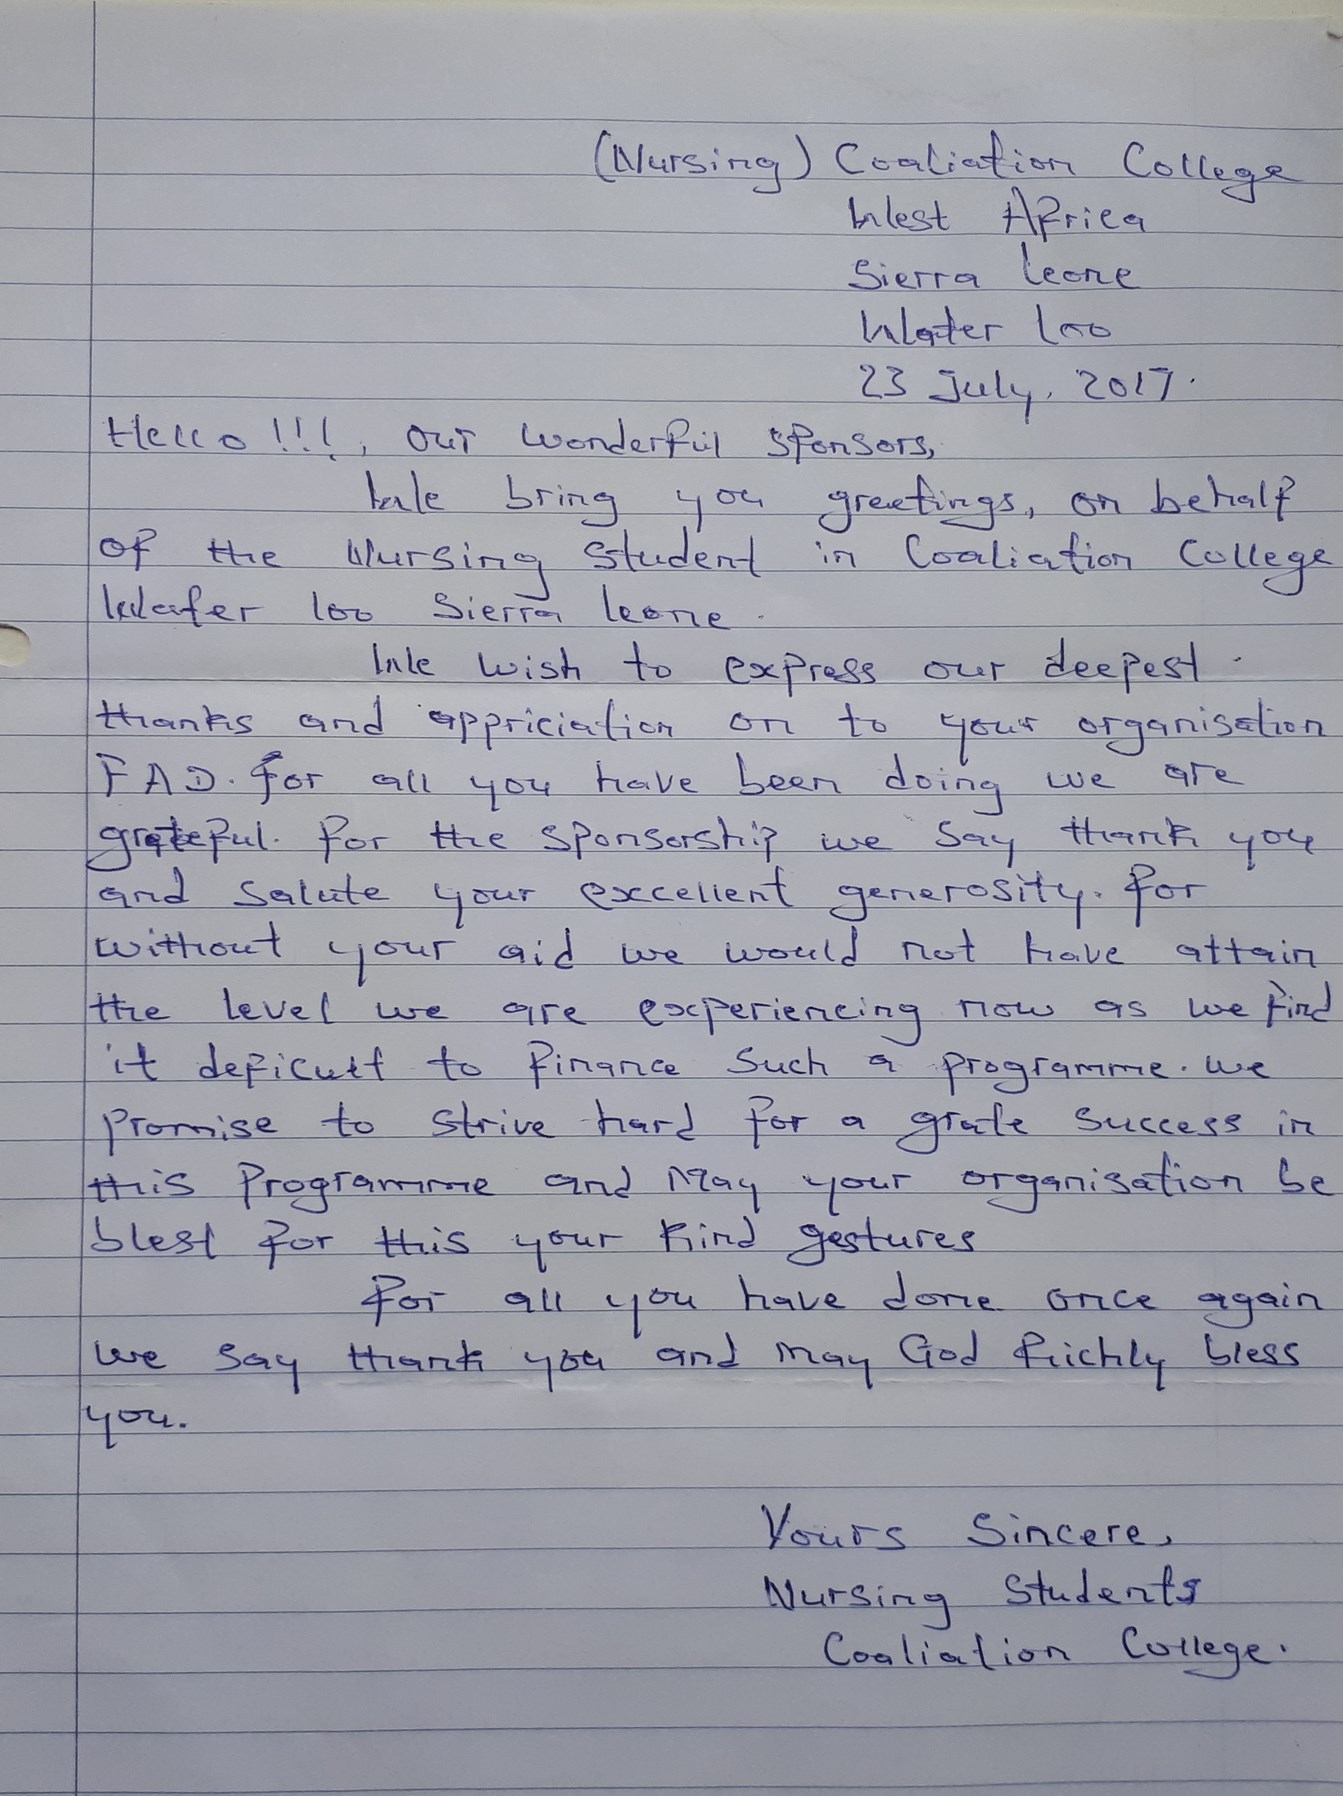 (Nursing) Coaliation College
West Africa
Sierra leone
Water loo
23 July, 2017.
Hello!!!, our wonderful sponsors,
We bring you greetings, on behalf
of the Nursing student in Coaliation College
Water loo Sierra leone.
We wish to express our deepest
thanks and appriciation on to your organisation
FAD. For all you have been doing we are
grateful. For the sponsorship we say thank you
and salute your excellent generosity. For
without your aid we would not have attain
the level we are experiencing now as we find
it deficult to finance such a programme. we
promise to strive hard for a grate success in
this Programme and May your organisation be
blest for this your kind gestures
For all you have done once again
we say thank you and may God Richly bless
you.
Yours Sincere,
Nursing Students
Coaliation College.